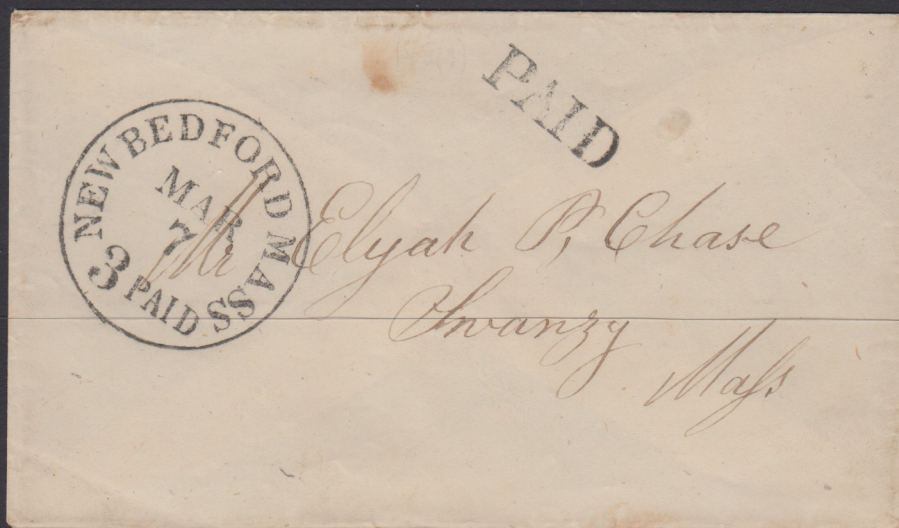 PAID
NEW BEDFORD MASS
MAR
7
3 PAID
Mr Elijah P. Chase
Swanzy
Mass